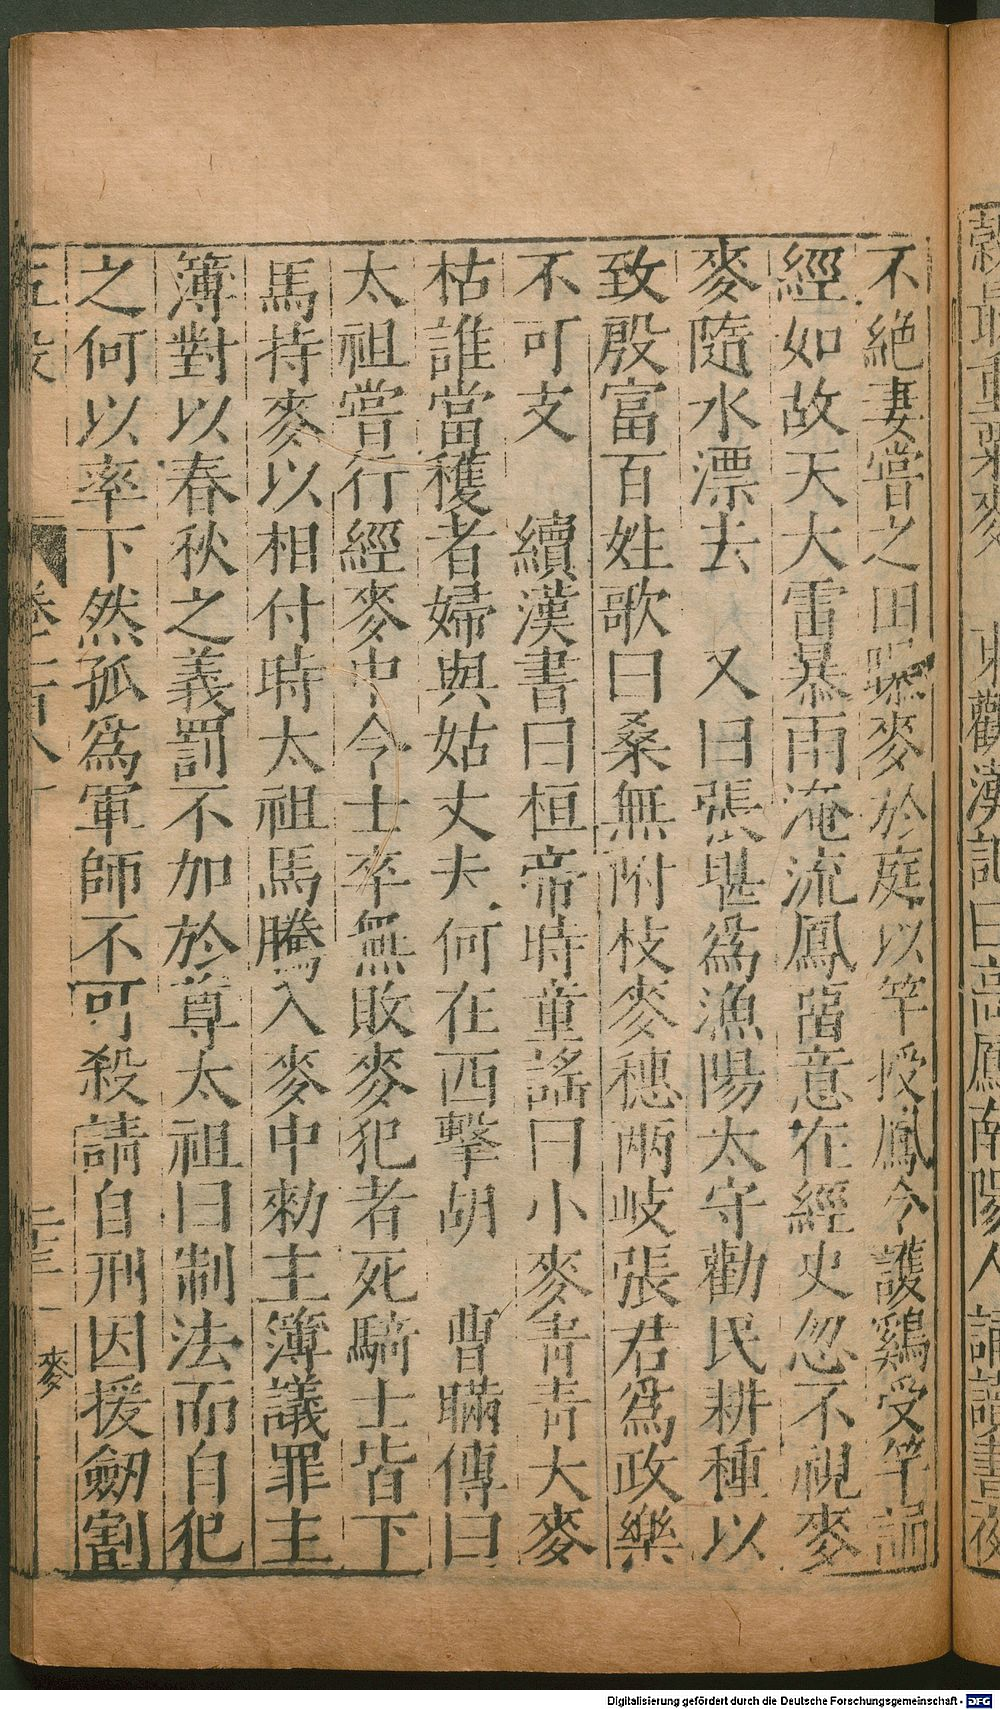 穀最重粟麥 東觀漢記曰高鳳南陽人誦讀書夜
不絶妻嘗之田曝麥於庭以竿授鳳令護鷄受竿誦
經如故天大雷暴雨淹流鳳留意在經史忽不視麥
麥隨水漂去 又曰張堪爲漁陽太守勸民耕種以
致殷富百姓歌曰桑無附枝麥穗兩岐張君爲政樂
不可支 續漢書曰桓帝時童謠曰小麥青青大麥
枯誰當穫者婦與姑丈夫何在西擊胡 曹瞞傳曰
太祖嘗行經麥中令士卒無敗麥犯者死騎士皆下
馬持麥以相付時太祖馬騰入麥中勑主簿議罪主
簿對以春秋之義罰不加於尊太祖曰制法而自犯
之何以率下然孤爲軍師不可殺請自刑因援劒割
麥
Digitalisierung gefördert durch die Deutsche Forschungsgemeinschaft - DFG